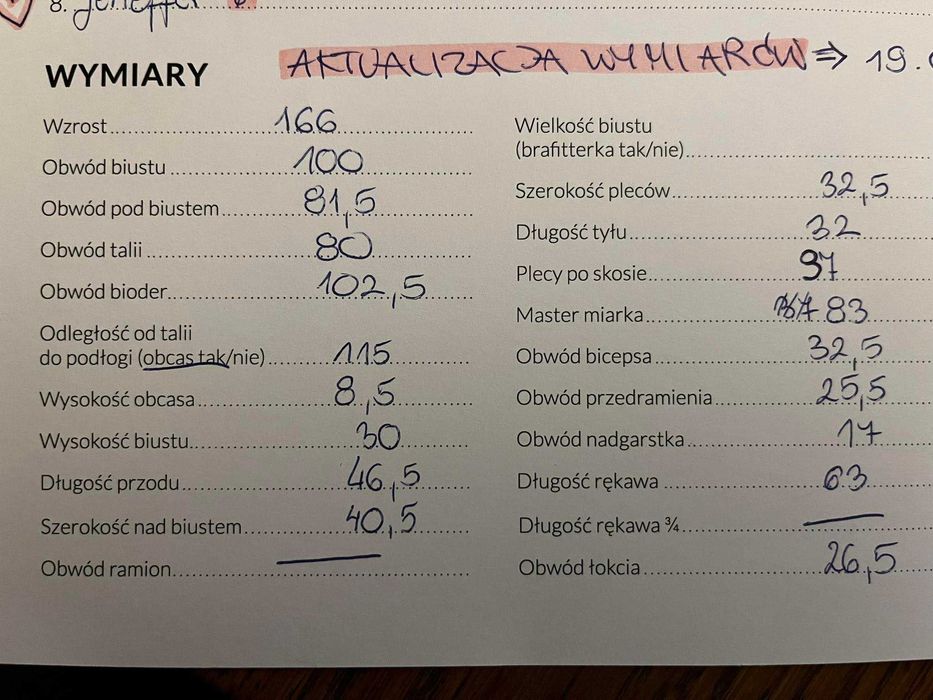 8. Jeneffer
WYMIARY
AKTUALIZACJA WYMIARÓW ⇒ 19.
Wzrost 166
Obwód biustu 100
Obwód pod biustem 81,5
Obwód talii 80
Obwód bioder 102,5
Odległość od talii
do podłogi (obcas tak/nie) 115
Wysokość obcasa 8,5
Wysokość biustu 30
Długość przodu 46,5
Szerokość nad biustem 40,5
Obwód ramion —
Wielkość biustu
(brafitterka tak/nie)
Szerokość pleców 32,5
Długość tyłu 32
Plecy po skosie 37
Master miarka 83
Obwód bicepsa 32,5
Obwód przedramienia 25,5
Obwód nadgarstka 17
Długość rękawa 63
Długość rękawa ¾ —
Obwód łokcia 26,5